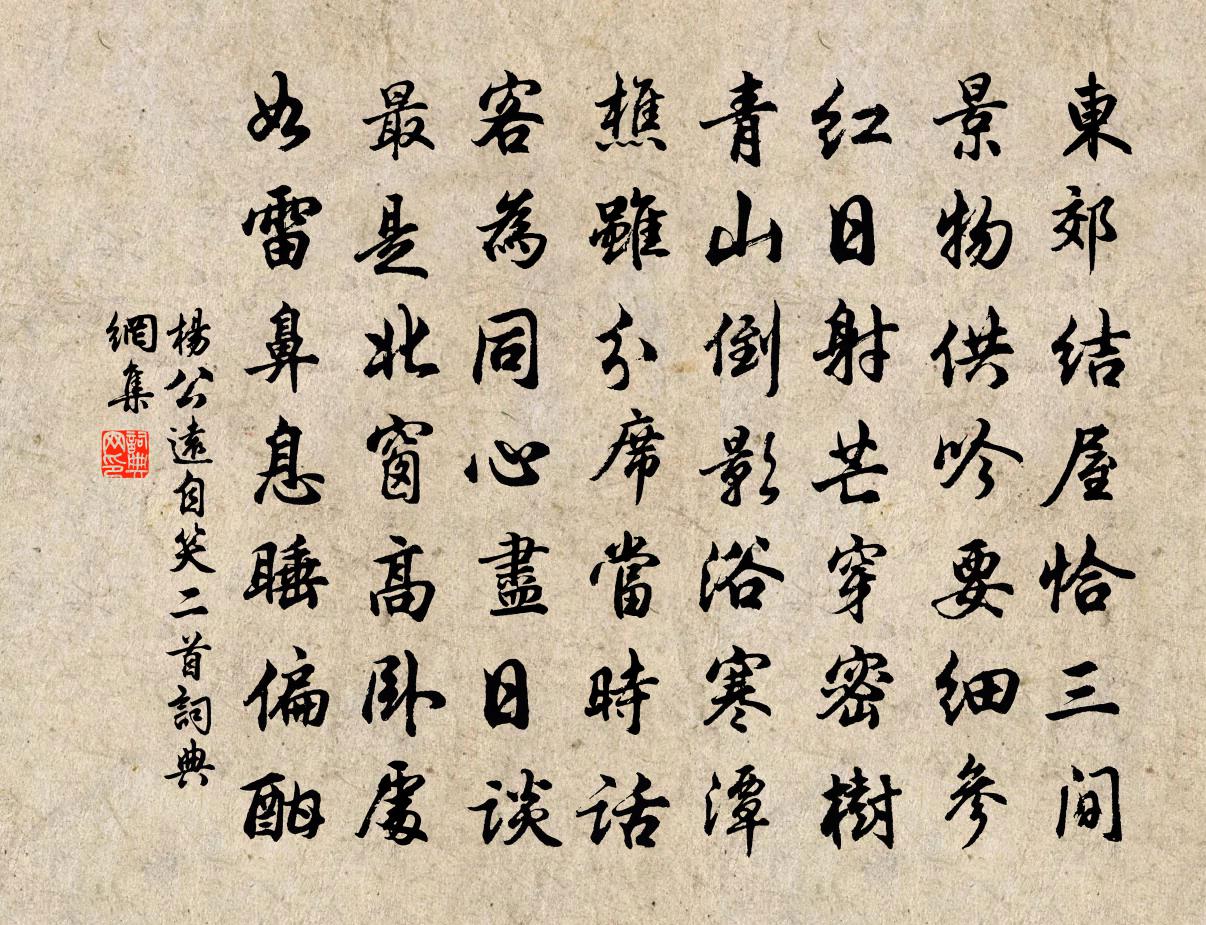 東郊結屋恰三間
景物供吟要細參
紅日射芒穿密樹
青山倒影浴寒潭
樵雖分席當時話
客為同心盡日談
最是北窗高卧處
如雷鼻息睡偏酣
楊公遠自笑二首詞典
網集
詞典
网印